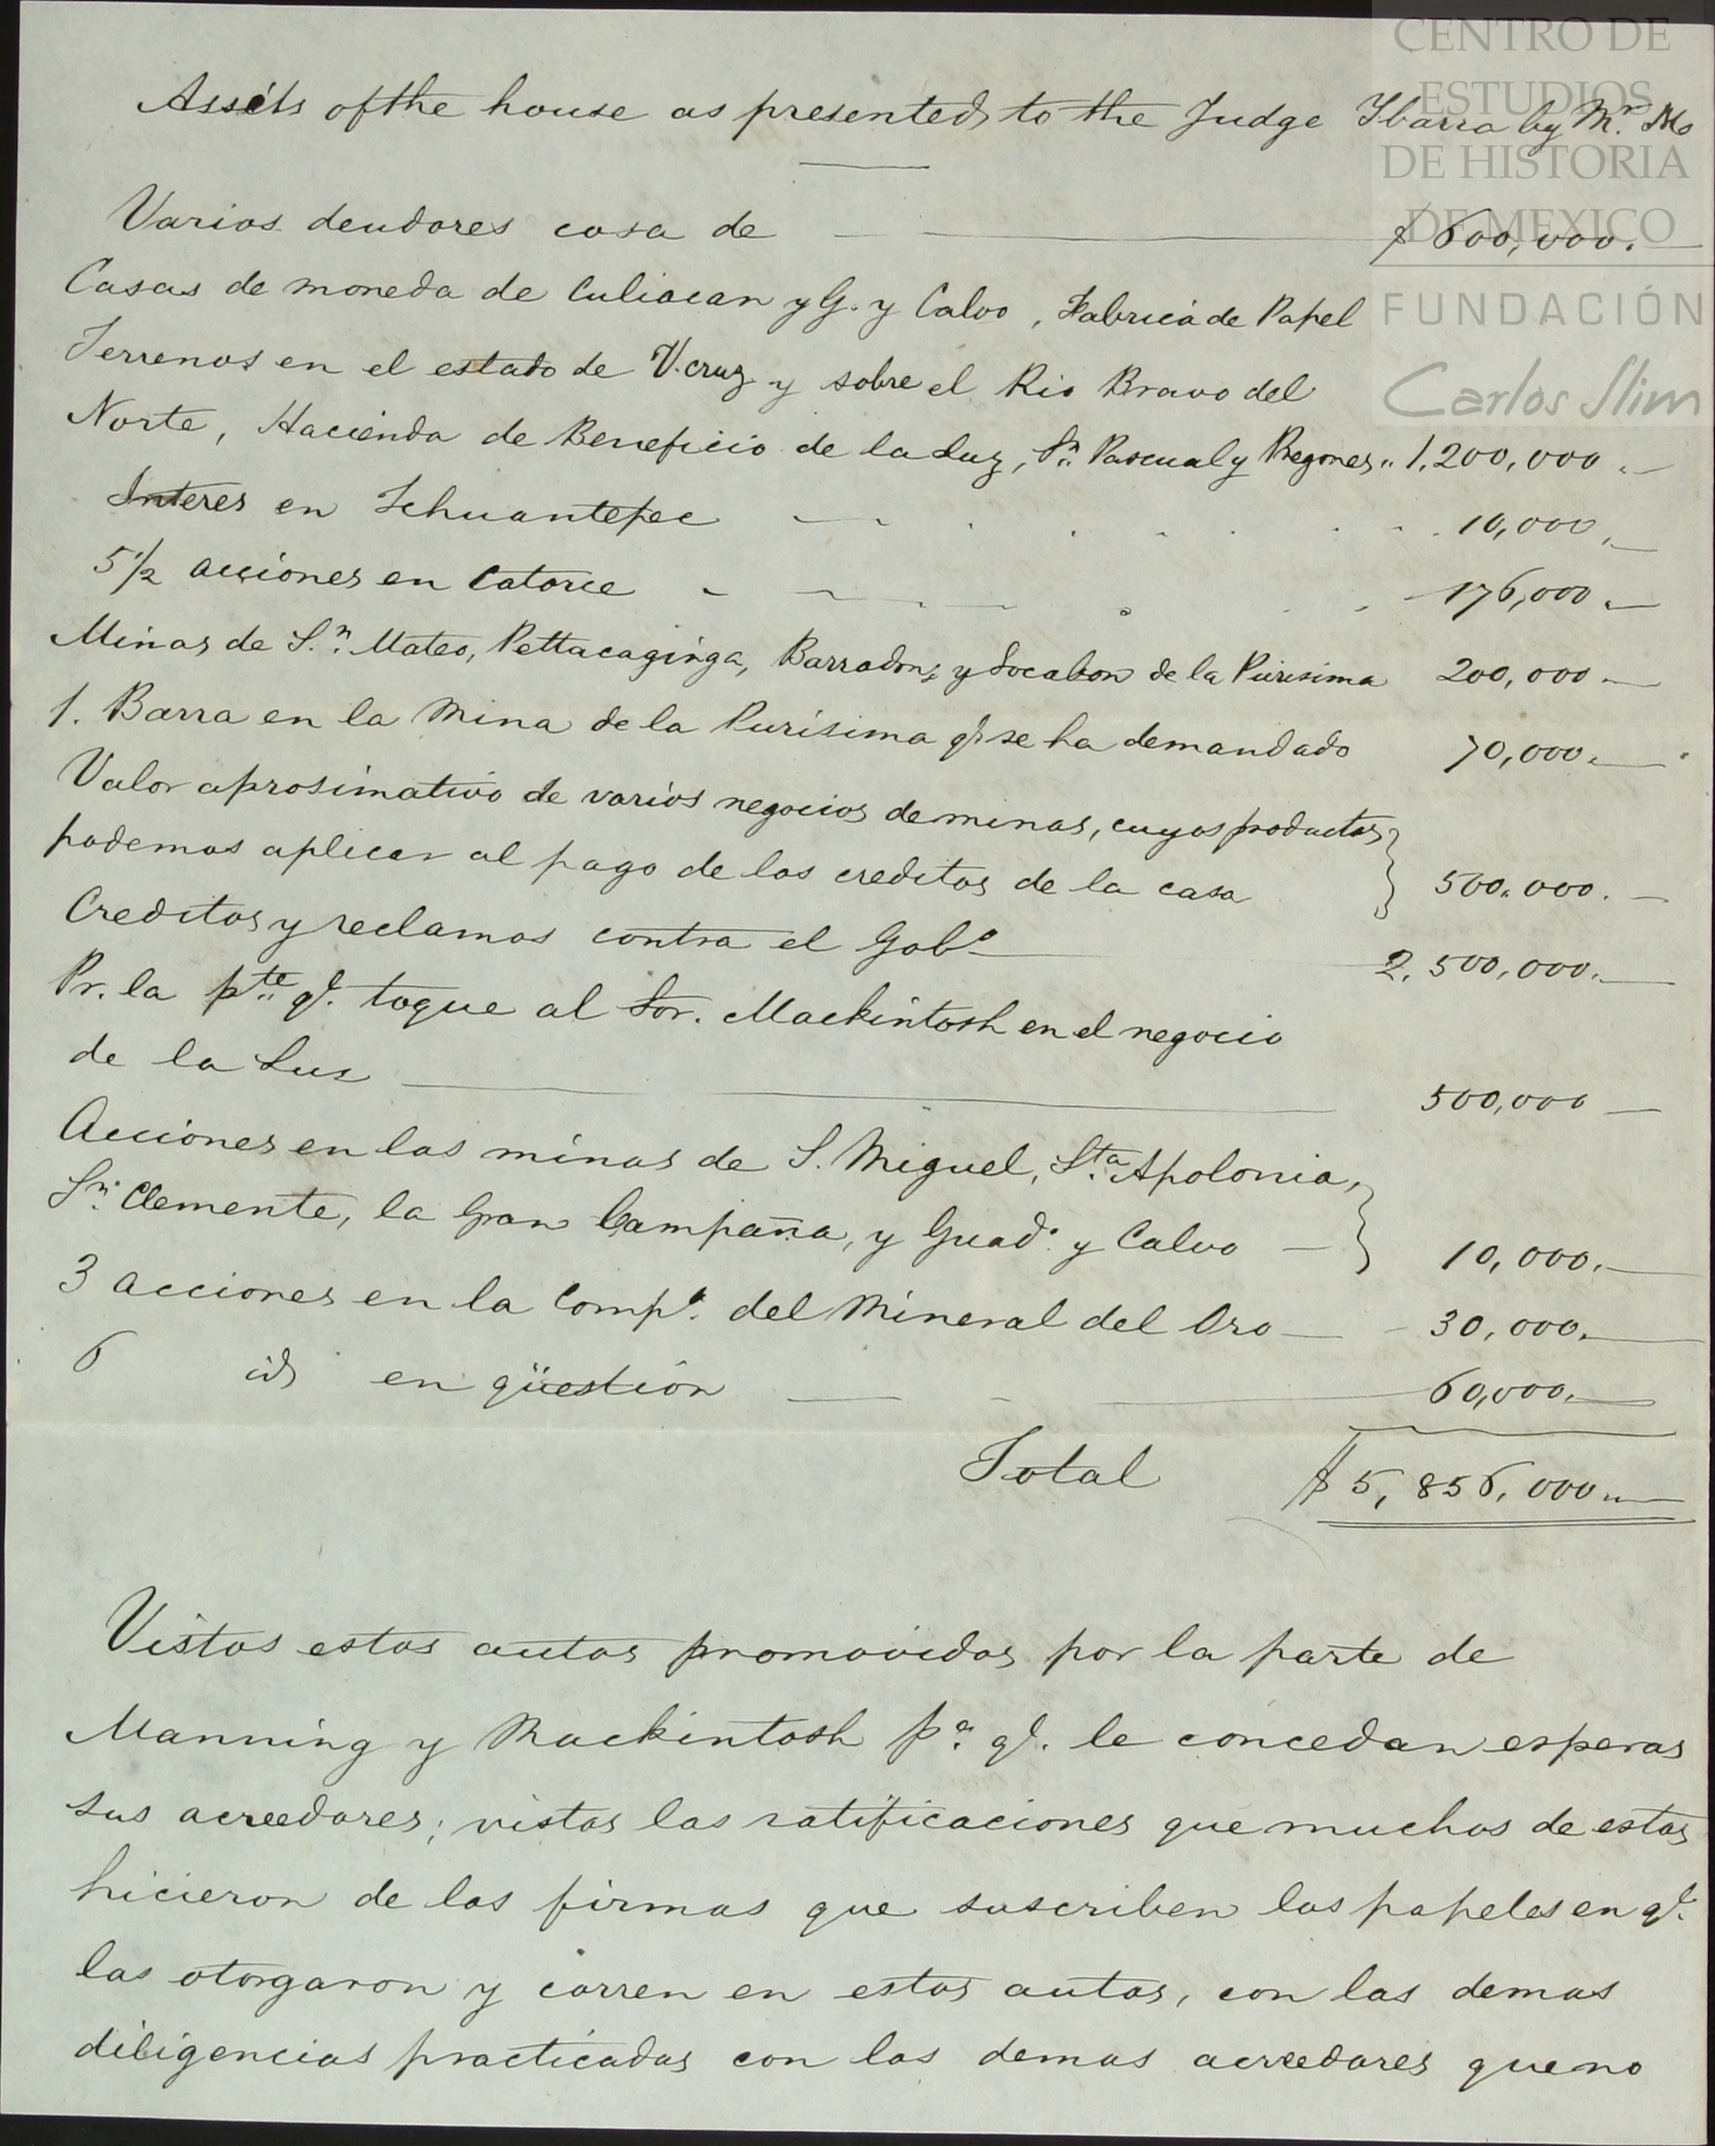 CENTRO DE
ESTUDIOS
DE HISTORIA
DE MEXICO
FUNDACIÓN
Carlos Slim
Assets of the house as presented to the Judge Ibarra by Mr. Mo
Varios deudores cosa de $ 600,000.
Casas de moneda de Culiacan y G. y Calvo, Fabrica de Papel
Terrenos en el estado de V.cruz y sobre el Rio Bravo del
Norte, Hacienda de Beneficio de la Luz, Sn. Pascual y Pregones " 1,200,000.
Interes en Tehuantepec 10,000.
5 1/2 acciones en Catorce 176,000.
Minas de Sn. Mateo, Pettacaginga, Barradon, y Socabon de la Purisima 200,000
1. Barra en la Mina de la Purisima q. se ha demandado 70,000.
Valor aprosimativo de varios negocios de minas, cuyos productos
podemos aplicar al pago de los creditos de la casa 500,000.
Creditos y reclamos contra el Gobo. 2,500,000.
Pr. la pte. q. toque al Sor. Mackintosh en el negocio
de la Luz 500,000
Acciones en las minas de S. Miguel, Sta. Apolonia,
Sn. Clemente, la Gran Compaña, y Guade. y Calvo 10,000.
3 acciones en la Compa. del Mineral del Oro 30,000.
6 id en qüestion 60,000.
Total $ 5,856,000.
Vistos estos autos promovidos por la parte de
Manning y Mackintosh pa. q. le concedan esperas
sus acreedores; vistas las ratificaciones que muchos de estos
hicieron de las firmas que suscriben los papeles en q.
las otorgaron y corren en estos autos, con las demas
diligencias practicadas con los demas acreedores que no